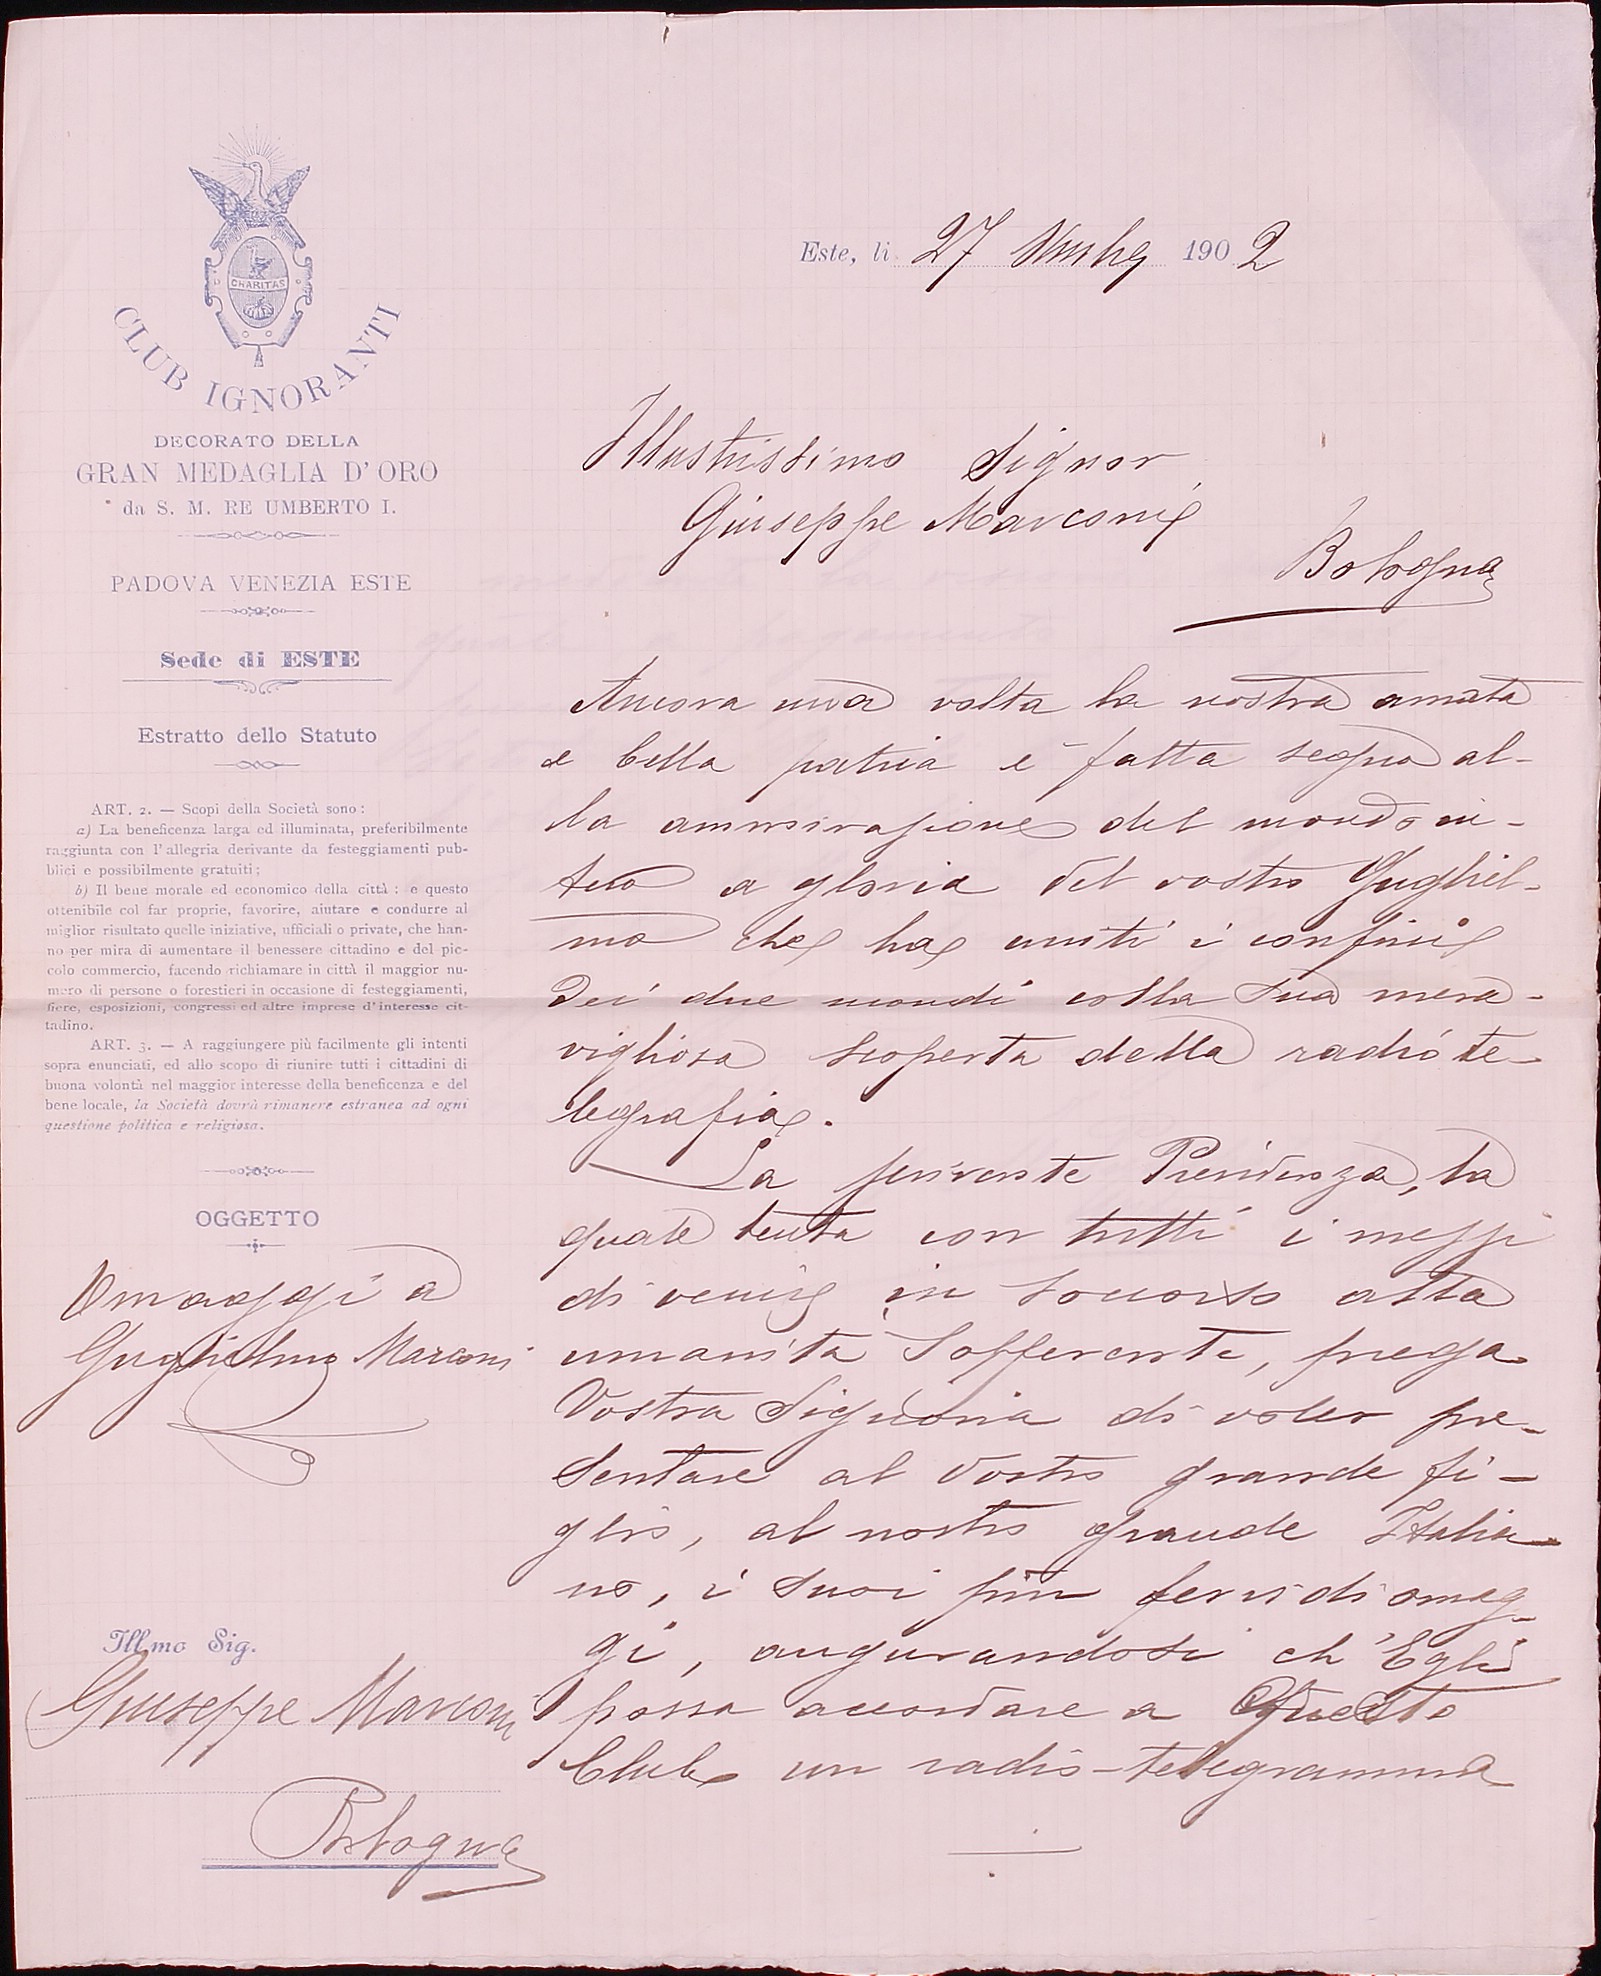 CHARITAS
CLUB IGNORANTI
DECORATO DELLA
GRAN MEDAGLIA D'ORO
da S. M. RE UMBERTO I.
PADOVA VENEZIA ESTE
Sede di ESTE
Estratto dello Statuto
ART. 2. — Scopi della Società sono:
a) La beneficenza larga ed illuminata, preferibilmente
raggiunta con l'allegria derivante da festeggiamenti pub-
blici e possibilmente gratuiti;
b) Il bene morale ed economico della città: e questo
ottenibile col far proprie, favorire, aiutare e condurre al
miglior risultato quelle iniziative, ufficiali o private, che han-
no per mira di aumentare il benessere cittadino e del pic-
colo commercio, facendo richiamare in città il maggior nu-
mero di persone o forestieri in occasione di festeggiamenti,
fiere, esposizioni, congressi ed altre imprese d'interesse cit-
tadino.
ART. 3. — A raggiungere più facilmente gli intenti
sopra enunciati, ed allo scopo di riunire tutti i cittadini di
buona volontà nel maggior interesse della beneficenza e del
bene locale, la Società dovrà rimanere estranea ad ogni
questione politica e religiosa.
OGGETTO
Omaggi a
Guglielmo Marconi
Illmo Sig.
Giuseppe Marconi
Bologna
Este, li 27 1902
Illustrissimo Signor
Giuseppe Marconi
Bologna
Ancora una volta la nostra amata
e bella patria è fatta segno al-
la ammirazione del mondo in-
tero a gloria del vostro Gugliel-
mo che ha uniti i confini
dei due mondi colla sua mera-
vigliosa scoperta della radiote-
legrafia.
La scrivente Presidenza, la
quale tenta con tutti i mezzi
di venire in soccorso alla
umanità sofferente, prega
Vostra Signoria di voler pre-
sentare al vostro grande fi-
glio, al nostro grande Italia-
no, i suoi più fervidi omag-
gi, augurandosi ch'Egli
possa accordare a Questo
Club un radio-telegramma